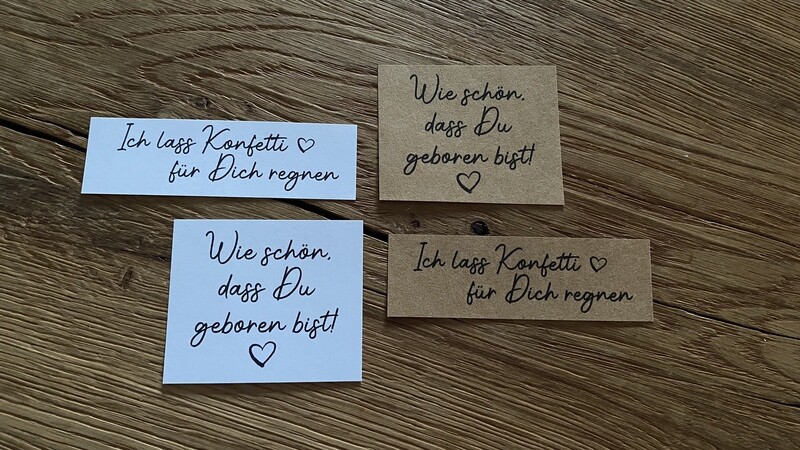 Ich lass Konfetti ♡
für Dich regnen
Wie schön,
dass Du
geboren bist!
♡
Wie schön,
dass Du
geboren bist!
♡
Ich lass Konfetti ♡
für Dich regnen